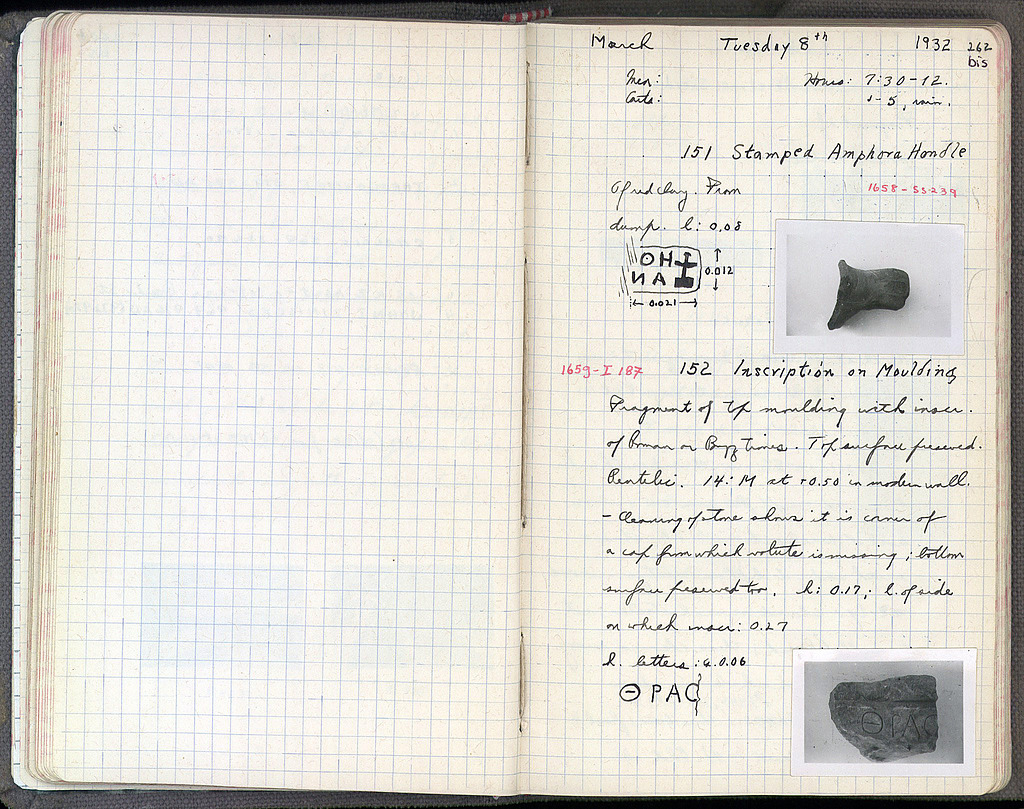 March Tuesday 8th 1932 262
bis
Men: Hours: 7:30-12.
Carts: 1-5, rain.
151 Stamped Amphora Handle
Of red clay. From 1658-SS239
dump. l: 0.08
ΟΗ
ИΑ
0.012
0.021
1659-I 187 152 Inscription on Moulding
Fragment of moulding with inscr.
of Roman or Byz times. Top surface preserved.
Pentelic. 14:M at +0.50 in modern wall.
- Cleaning of stone shows it is corner of
a cap from which volute is missing; bottom
surface preserved too. h: 0.17; l. of side
on which inscr: 0.27
h. letters: a. 0.06
ΘΡΑC
ΘΡΑC